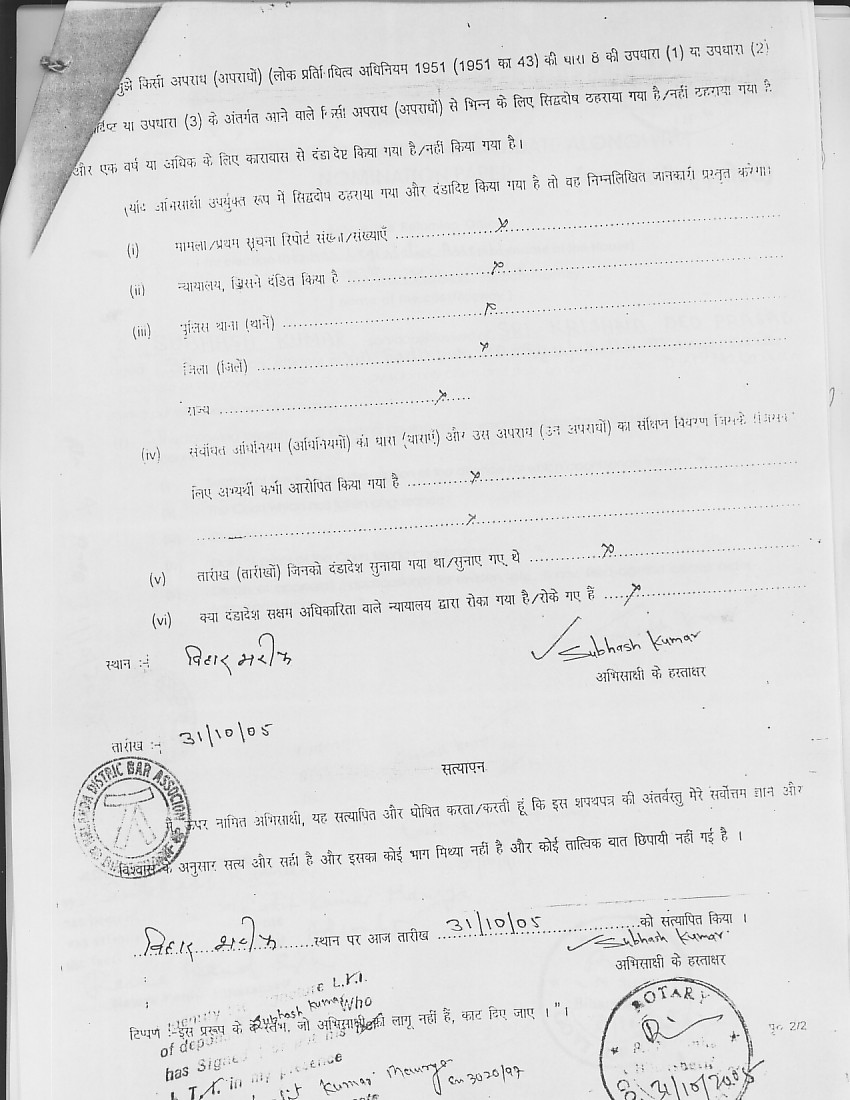 मुझे किसी अपराध (अपराधों) (लोक प्रतिनिधित्व अधिनियम 1951 (1951 का 43) की धारा 8 की उपधारा (1) या उपधारा (2)
या उपधारा (3) के अंतर्गत आने वाले किसी अपराध (अपराधों) से भिन्न के लिए सिद्वदोष ठहराया गया है/नहीं ठहराया गया है
और एक वर्ष या अधिक के लिए कारावास से दंडादेष्ट किया गया है/नहीं किया गया है।
(यदि अभिसाक्षी उपर्युक्त रूप में सिद्वदोष ठहराया गया और दंडादिष्ट किया गया है तो वह निम्नलिखित जानकारी प्रस्तुत करेगा)
(i) मामला/प्रथम सूचना रिपोर्ट संख्या/संख्याएँ .......... x ..........
(ii) न्यायालय, जिसने दंडित किया है .......... x ..........
(iii) पुलिस थाना (थानें) .......... x ..........
जिला (जिलें) .......... x ..........
राज्य .......... x .....
(iv) संबंधित अधिनियम (अधिनियमों) की धारा (धाराएँ) और उस अपराध (उन अपराधों) का संक्षिप्त विवरण जिसके
लिए अभ्यर्थी कभी आरोपित किया गया है .......... x ..........
.......... x ..........
(v) तारीख (तारीखों) जिनको दंडादेश सुनाया गया था/सुनाए गए थे .......... x ..........
(vi) क्या दंडादेश सक्षम अधिकारिता वाले न्यायालय द्वारा रोका गया है/रोके गए हैं ..... x ..........
स्थान :- बिहार शरीफ
Subhash Kumar
अभिसाक्षी के हस्ताक्षर
तारीख :- 31/10/05
सत्यापन
NALANDA DISTRIC BAR ASSOCION
ऊपर नामित अभिसाक्षी, यह सत्यापित और घोषित करता/करती हूं कि इस शपथपत्र की अंतर्वस्तु मेरे सर्वोत्तम ज्ञान और
विश्वास के अनुसार सत्य और सही है और इसका कोई भाग मिथ्या नहीं है और कोई तात्विक बात छिपायी नहीं गई है ।
बिहार शरीफ ......स्थान पर आज तारीख 31/10/05 ..........को सत्यापित किया ।
Subhash Kumar
अभिसाक्षी के हस्ताक्षर
L.T.I.
Subhash Kumar Who
टिप्पण :-इस प्ररूप के वे स्तंभ, जो अभिसाक्षी को लागू नहीं हैं, काट दिए जाए । "।
of
has Signed
L.T.I. in my presence
Kumar Maurya
3020/97
NOTARY
31/10/2005
पृ0 2/2